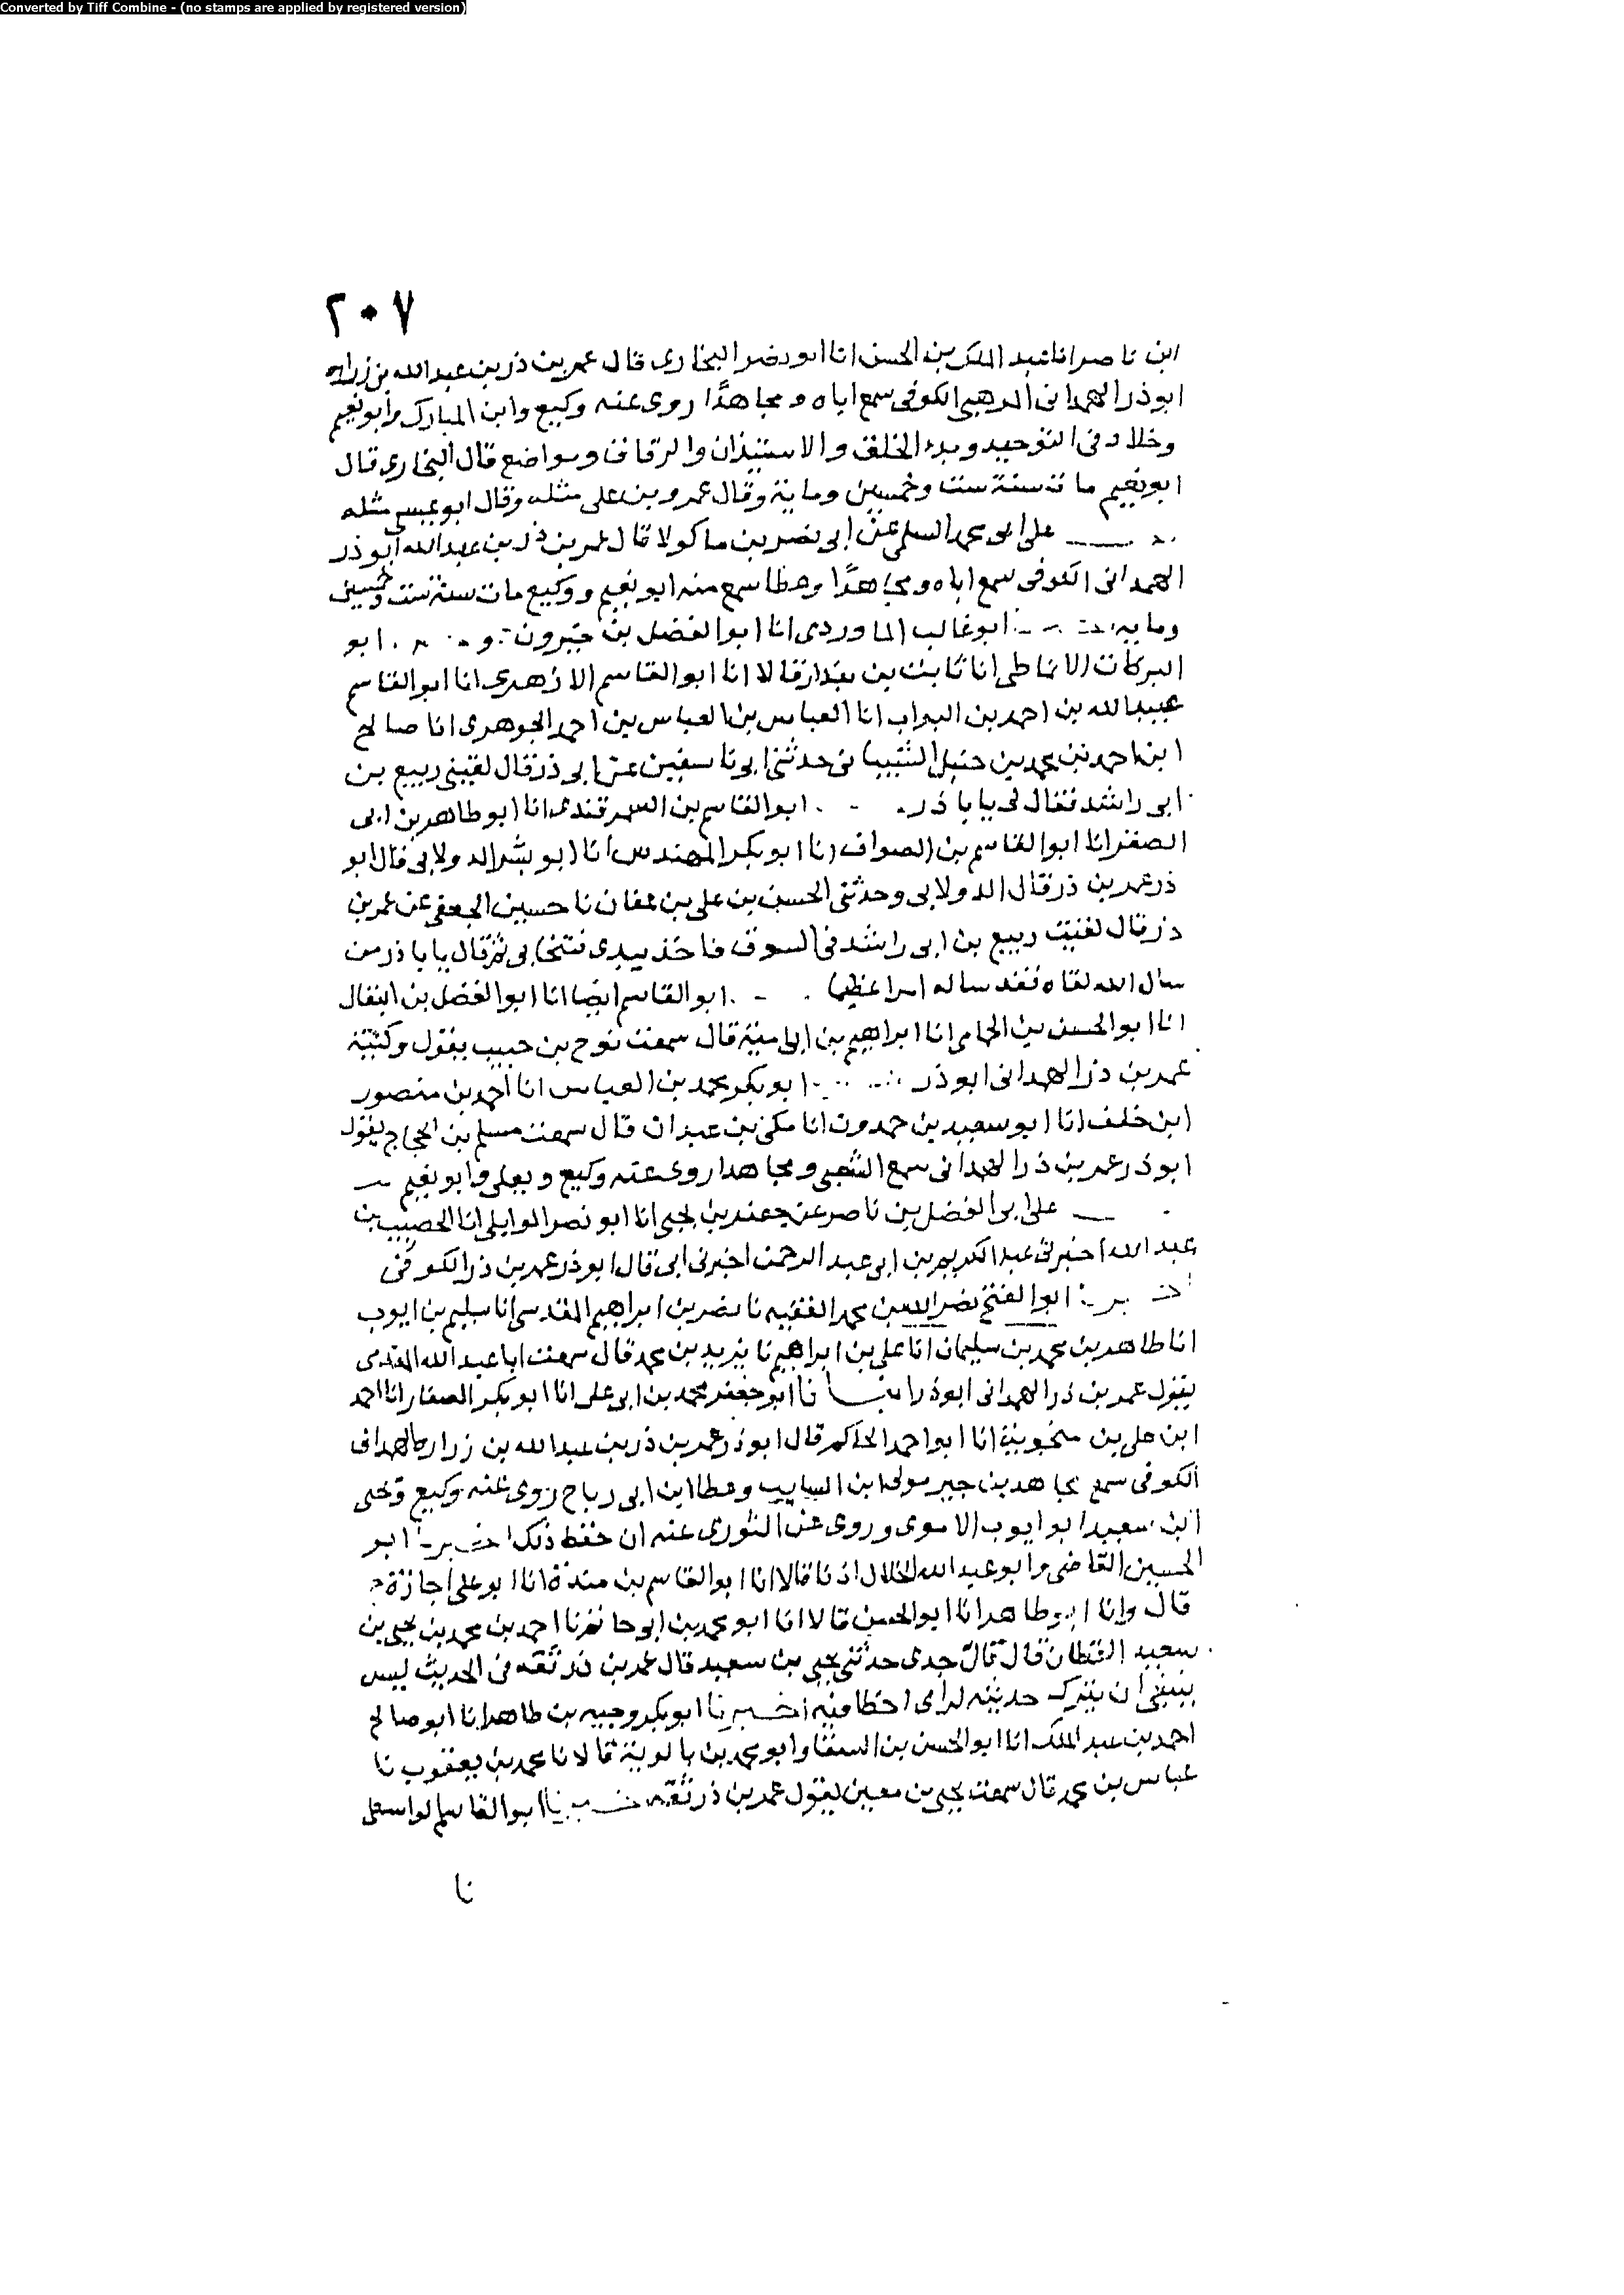 Converted by Tiff Combine - (no stamps are applied by registered version)
٢٠٧
ابن ناصر انا عبد الملك بن الحسن انا ابو نصر البخاري قال عمر بن ذر بن عبد الله بن زرارة
ابو ذر الهمداني المرهبي الكوفي سمع اباه ومجاهدًا روى عنه وكيع وابن المبارك وابو نعيم
وخلاد في التوحيد وبدء الخلق والاستيذان والرقاق ومواضع قال البخاري قال
ابو نعيم مات سنة ست وخمسين وماية وقال عمرو بن علي مثله وقال ابو عيسى مثله
على ابي محمد السلمي عن ابي نصر بن ماكولا قال عمر بن ذر بن عبد الله ابو ذر
الهمداني الكوفي سمع اباه ومجاهدًا وعطا سمع منه ابو نعيم ووكيع مات سنة ست وخمسين
وماية ابو غالب الماوردي انا ابو الفضل بن خيرون ابو
البركات الانماطي انا ثابت بن بندار قالا انا ابو القاسم الازهري انا ابو القاسم
عبيد الله بن احمد بن البواب انا العباس بن العباس بن احمد الجوهري انا صالح
ابن احمد بن محمد بن حنبل الشيباني حدثني ابي نا سفين عن ابي ذر قال لقيني ربيع بن
ابي راشد فقال لي يا با ذر ابو القاسم بن السمرقندي انا ابو طاهر بن ابي
الصقر انا ابو القاسم بن الصواف انا ابو بكر المهندس انا ابو بشر الدولابي قال ابو
ذر عمر بن ذر قال الدولابي وحدثني الحسن بن علي بن عفان نا حسين الجعفي عن عمر بن
ذر قال لقيت ربيع بن ابي راشد في السوق فاخذ بيدي فتنحا بي ثم قال يا با ذر من
سال الله لقاه فقد ساله امرا عظيما ابو القاسم ايضا انا ابو الفضل بن البقال
انا ابو الحسن بن الحمامي انا ابراهيم بن ابي امية قال سمعت نوح بن حبيب يقول وكنية
عمر بن ذر الهمداني ابو ذر ابو بكر محمد بن العباس انا احمد بن منصور
ابن خلف انا ابو سعيد بن حمدون انا مكي بن عبدان قال سمعت مسلم بن الحجاج يقول
ابو ذر عمر بن ذر الهمداني سمع الشعبي ومجاهدا روى عنه وكيع ويعلى وابو نعيم
على ابي الفضل بن ناصر عن جعفر بن يحيى انا ابو نصر الوايلي انا الخصيب بن
عبد الله اخبرني عبد الكريم بن ابي عبد الرحمن اخبرني ابي قال ابو ذر عمر بن ذر الكوفي
ابو الفتح نصر الله بن محمد الفقيه نا نصر بن ابراهيم المقدسي انا سليم بن ايوب
انا طاهر بن محمد بن سليمان انا علي بن ابراهيم نا يزيد بن محمد قال سمعت ابا عبد الله المقدمي
يقول عمر بن ذر الهمداني ابو ذر انبانا ابو جعفر محمد بن ابي علي انا ابو بكر الصفار انا احمد
ابن علي بن منجويه انا ابو احمد الحاكم قال ابو ذر عمر بن ذر بن عبد الله بن زرارة الهمداني
الكوفي سمع مجاهد بن جبر مولى ابن السايب وعطا ابن ابي رباح روى عنه وكيع ويحيى
ابن سعيد ابو ايوب الاموي وروى عن الثوري عنه ان حفظ ذلك اخبرنا ابو
الحسين القاضي وابو عبد الله الخلال اذنا قالا انا ابو القاسم بن مندة انا ابو علي اجازة ح
قال وانا ابو طاهر انا ابو الحسن قالا انا ابو محمد بن ابي حاتم نا احمد بن محمد بن يحيى بن
سعيد القطان قال قال جدي حدثني يحيى بن سعيد قال عمر بن ذر ثقة في الحديث ليس
ينبغي ان يترك حديثه لراى اخطا فيه اخبرنا ابو بكر وجيه بن طاهر انا ابو صالح
احمد بن عبد الملك انا ابو الحسن بن السقا وابو محمد بن بالوية قالا نا محمد بن يعقوب نا
عباس بن محمد قال سمعت يحيى بن معين يقول عمر بن ذر ثقة اخبرنا ابو القاسم الواسطي
نا